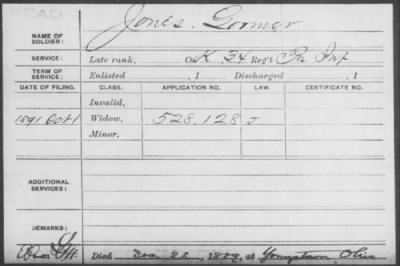 DEAD
NAME OF SOLDIER: Jones, Gomer
SERVICE: Late rank, Co. K, 34 Reg't Pa Inf
TERM OF SERVICE: Enlisted , 1 Discharged , 1
DATE OF FILING. CLASS. APPLICATION NO. LAW. CERTIFICATE NO.
Invalid,
1891 Oct 1 Widow, 528.128
Minor,
ADDITIONAL SERVICES:
REMARKS:
Died Dec 22, 1889, at Youngstown Ohio